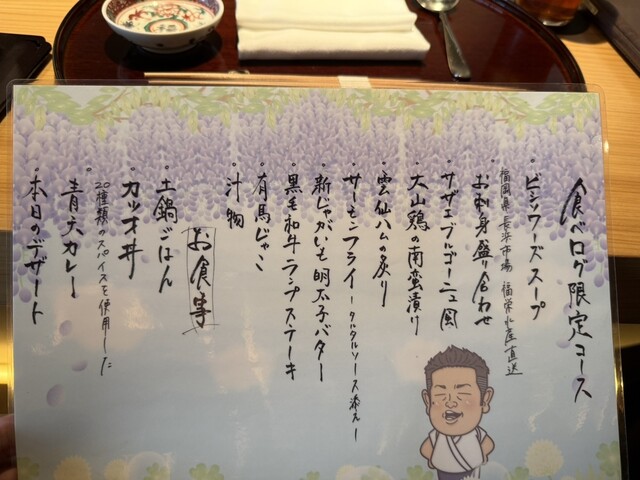 食べログ限定コース
・ビシソワーズスープ
福岡県 長浜市場 福栄水産直送
・お刺身盛り合わせ
・サザエブルゴーニュ風
・大山鶏の南蛮漬け
・雲仙ハムの炙り
・サーモンフライ ータルタルソース添えー
・新じゃがいも明太子バター
・黒毛和牛ランプステーキ
・有馬じゃこ
・汁物
お食事
・土鍋ごはん
・カツオ丼
20種類のスパイスを使用した
・青六カレー
・本日のデザート